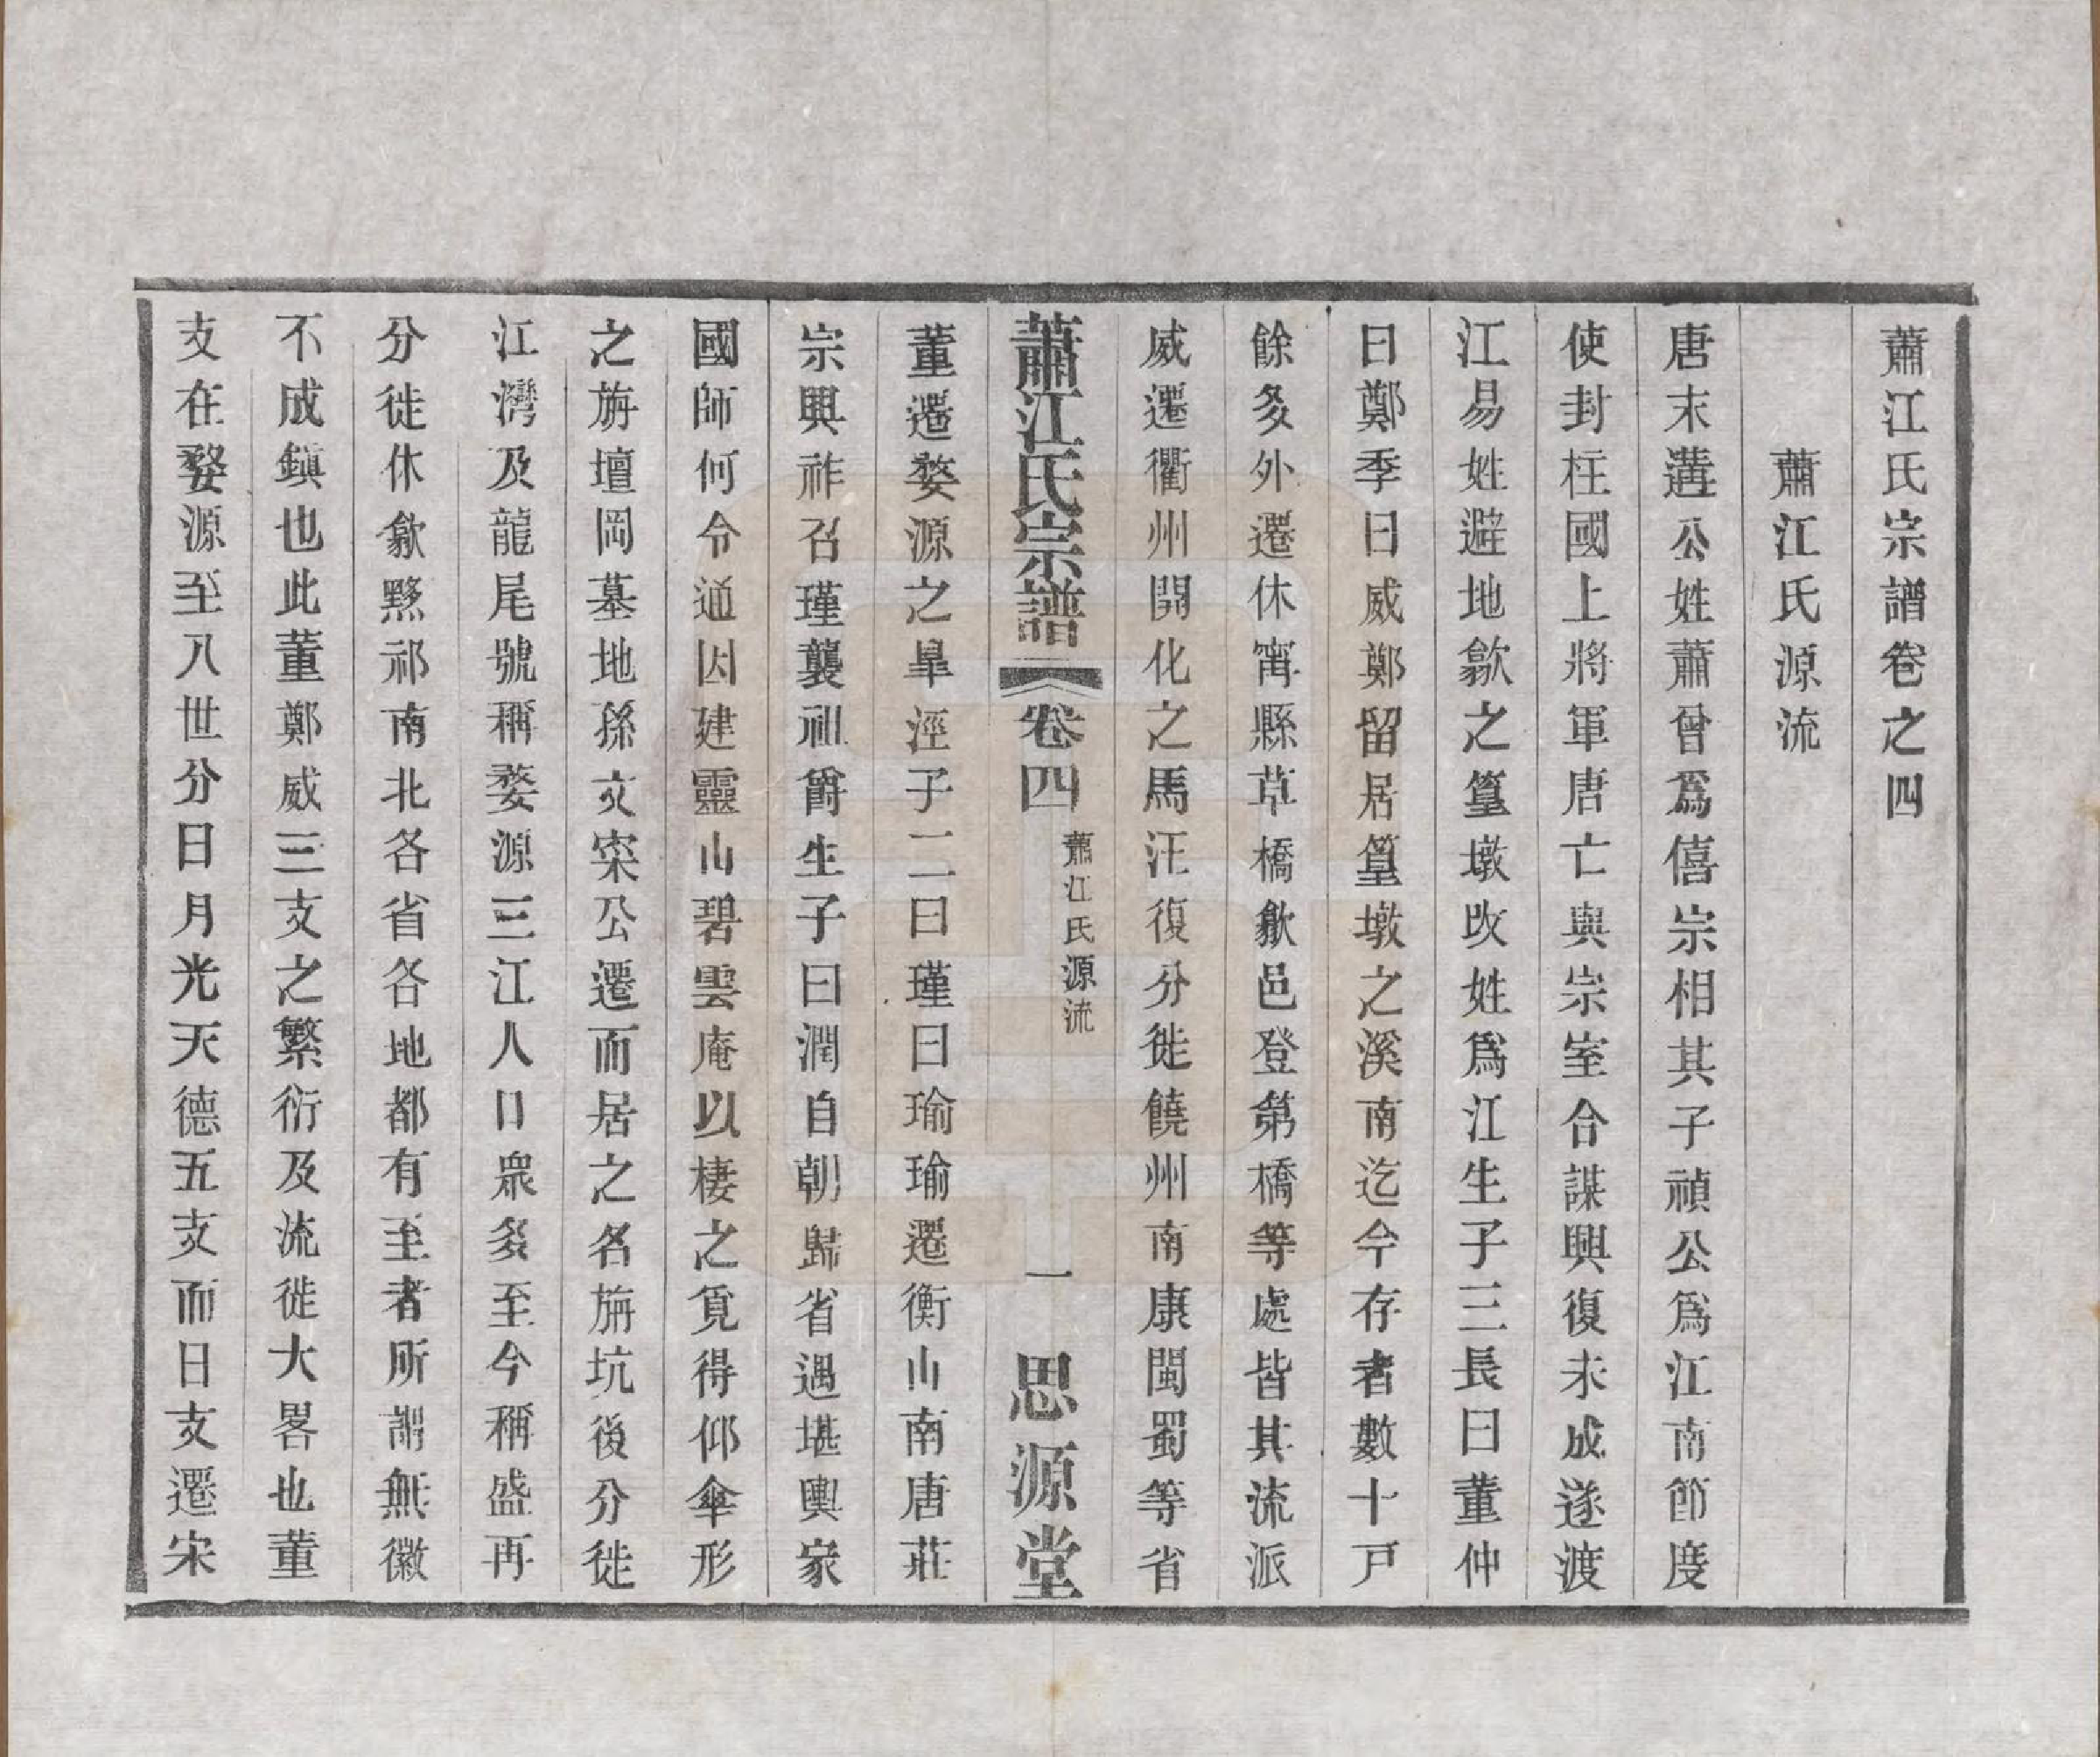 蕭江氏宗譜卷之四
蕭江氏源流
唐末遘公姓蕭曾爲僖宗相其子禎公爲江南節度
使封柱國上將軍唐亡與宗室合謀興復未成遂渡
江易姓避地歙之篁墩改姓爲江生子三長曰董仲
曰鄭季曰威鄭留居篁墩之溪南迄今存者數十戸
餘多外遷休甯縣草橋歙邑登第橋等處皆其流派
威遷衢州開化之馬汪復分徙饒州南康閩蜀等省
蕭江氏宗譜 卷四 蕭江氏源流 一 思源堂
董遷婺源之皐涇子二曰瑾曰瑜瑜遷衡山南唐莊
宗興祚召瑾襲祖爵生子曰潤自朝歸省遇堪輿家
國師何令通因建靈山碧雲庵以棲之覓得仰傘形
之旃壇岡墓地孫文寀公遷而居之名旃坑後分徙
江灣及龍尾號稱婺源三江人口眾多至今稱盛再
分徙休歙黟祁南北各省各地都有至者所謂無徽
不成鎮也此董鄭威三支之繁衍及流徙大畧也董
支在婺源至八世分日月光天德五支而日支遷宋